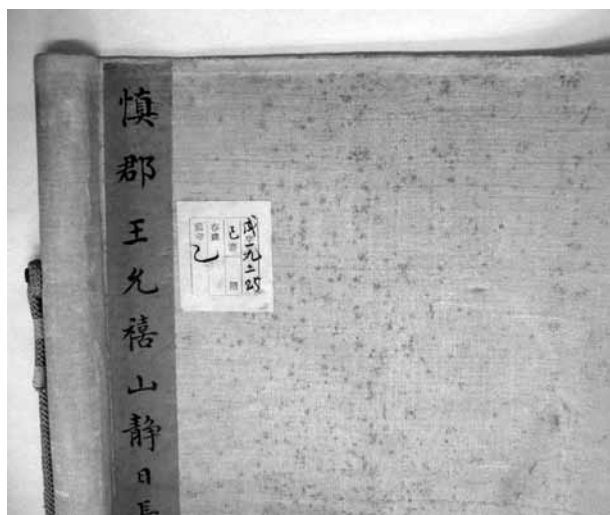 慎郡王允禧山静日長
成一九二25
乙